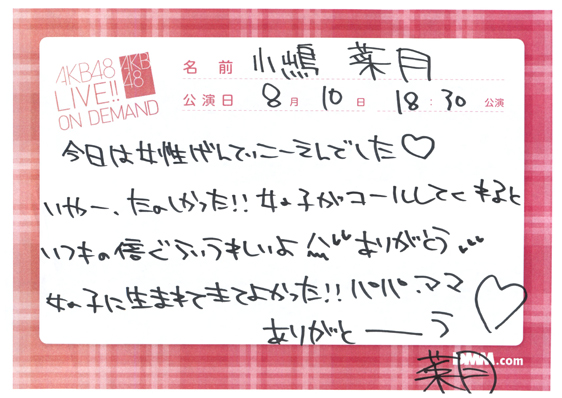 AKB48
LIVE!!
ON DEMAND
AKB
48
名前 小嶋 菜月
公演日 8月 10日 18:30 公演
今日は女性げんてぃこーえんでした♡
いやー、たのしかった!! 女の子がコールしてくれると
いつもの倍ぐらいうれしいよ ありがとう
女の子に生まれてきてよかった!! パパ、ママ
ありがとーーう
DMM.com
菜月